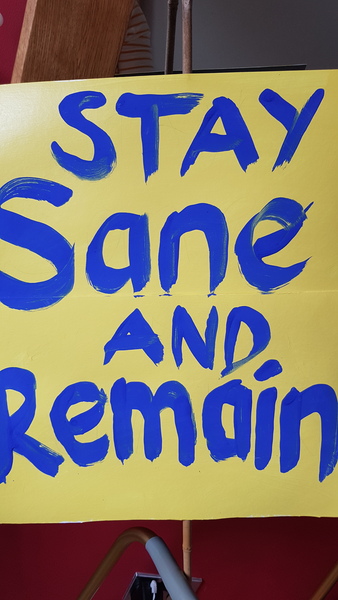 STAY
Sane
AND
Remain